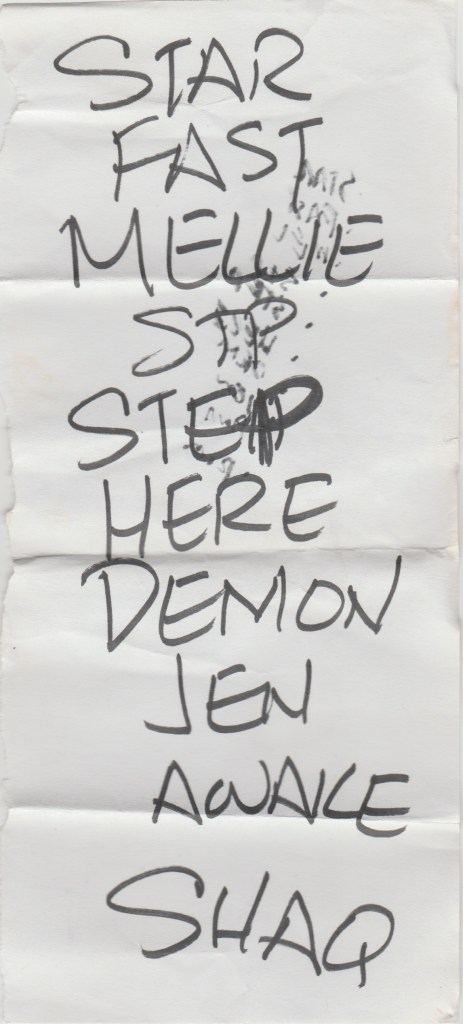 STAR
FAST
MELLIE
STP
STEP
HERE
DEMON
JEN
AWAKE
SHAQ